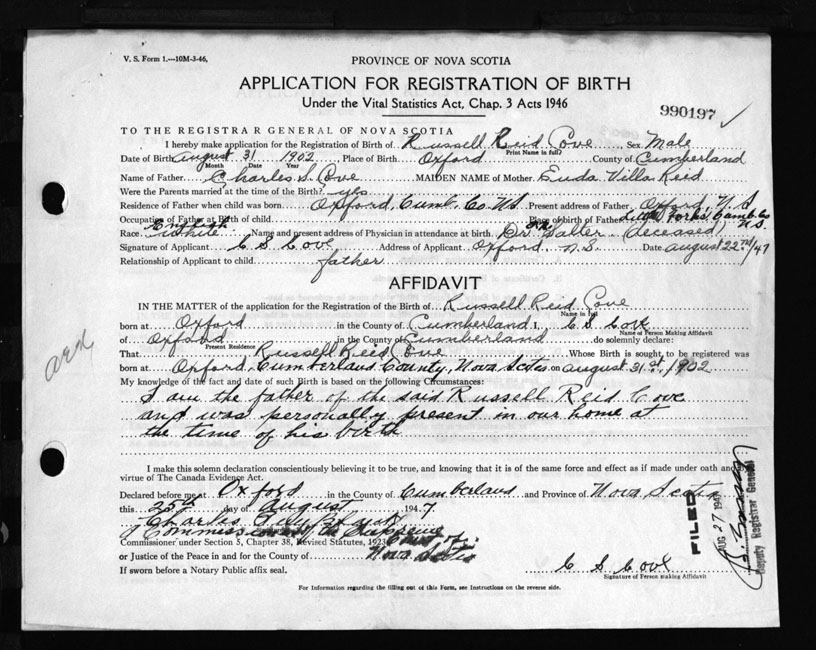 V. S. Form 1.—10M-3-46,
PROVINCE OF NOVA SCOTIA
APPLICATION FOR REGISTRATION OF BIRTH
Under the Vital Statistics Act, Chap. 3 Acts 1946
990197
TO THE REGISTRAR GENERAL OF NOVA SCOTIA
I hereby make application for the Registration of Birth of Russell Reid Cove Sex Male
Print Name in full
Date of Birth August 31 1902 Place of Birth Oxford County of Cumberland
Month Date Year
Name of Father Charles S. Cove MAIDEN NAME of Mother Villa Reid
Were the Parents married at the time of the Birth? yes
Residence of Father when child was born Oxford, Cumb. Co. N.S. Present address of Father Oxford, N. S
Occupation of Father at Birth of child Place of birth of Father Little Forks Cumb. Co N.S.
Race English White Name and present address of Physician in attendance at birth. Dr. Salter (deceased)
Signature of Applicant C S Cove Address of Applicant Oxford N.S. Date August 22nd/47
Relationship of Applicant to child father
AFFIDAVIT
IN THE MATTER of the application for the Registration of the Birth of Russell Reid Cove
Name in full
born at Oxford in the County of Cumberland I, C S Cove
Name of Person Making Affidavit
of Oxford in the County of Cumberland do solemnly declare:
Present Residence
That Russell Reid Cove Whose Birth is sought to be registered was
born at Oxford, Cumberland County, Nova Scotia on August 31st, 1902
My knowledge of the fact and date of such Birth is based on the following Circumstances:
I am the father of the said Russell Reid Cove
and was personally present in our home at
the time of his birth
I make this solemn declaration conscientiously believing it to be true, and knowing that it is of the same force and effect as if made under oath and by
virtue of The Canada Evidence Act.
Declared before me at Oxford in the County of Cumberland and Province of Nova Scotia
this 25th day of August 1947
Charles
A Commissioner of the Supreme
Commissioner under Section 5, Chapter 38, Revised Statutes, 1923 Court of
or Justice of the Peace in and for the County of Nova Scotia
If sworn before a Notary Public affix seal.
C S Cove
Signature of Person making Affidavit
For Information regarding the filling out of this Form, see Instructions on the reverse side.
FILED
AUG 27 1947
Deputy Registrar General